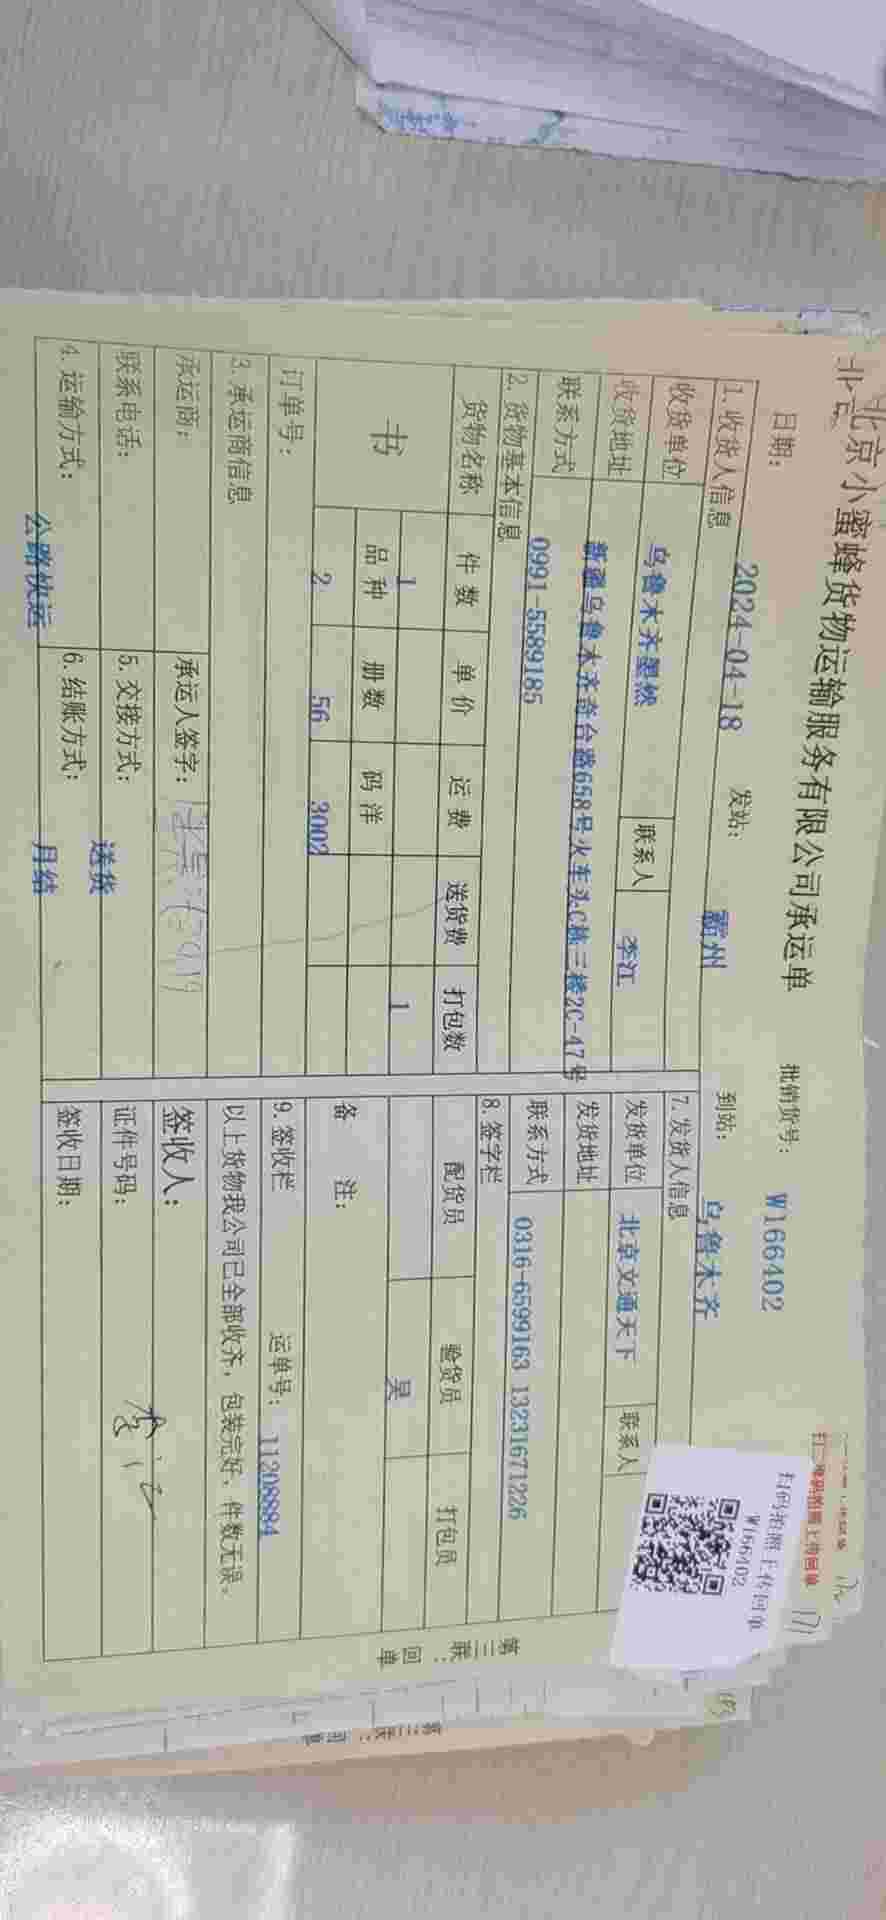 北京小蜜蜂货物运输服务有限公司承运单
日期: 2024-04-18 发站: 霸州 到站: 乌鲁木齐
批销货号: W166402
扫二维码拍照上传回单
扫码拍照上传回单
W166402
1. 收货人信息
收货单位 乌鲁木齐墨然 联系人 李江
收货地址 新疆乌鲁木齐奇台路658号火车头C栋三楼2C-47号
联系方式 0991-5589185
2. 货物基本信息
货物名称 件数 单价 运费 送货费 打包数
书 1 1
品种 册数 码洋
2 56 3002
订单号:
3. 承运商信息
承运商: 承运人签字:
联系电话: 5. 交接方式: 送货
4. 运输方式: 公路快运 6. 结账方式: 月结
7. 发货人信息
发货单位 北京文通天下 联系人
发货地址
联系方式 0316-6599163 13231671226
8. 签字栏
配货员 验货员 打包员
吴
备 注:
9. 签收栏 运单号: 11208884
以上货物我公司已全部收齐，包装完好、件数无误。
签收人: 李江
证件号码:
签收日期:
第三联：回单
第三联：回单